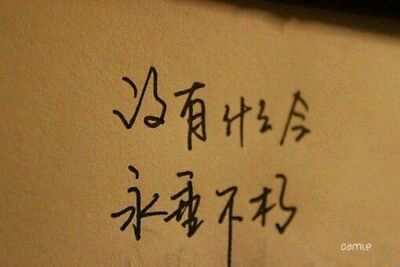 没有什么会
永垂不朽
oamle